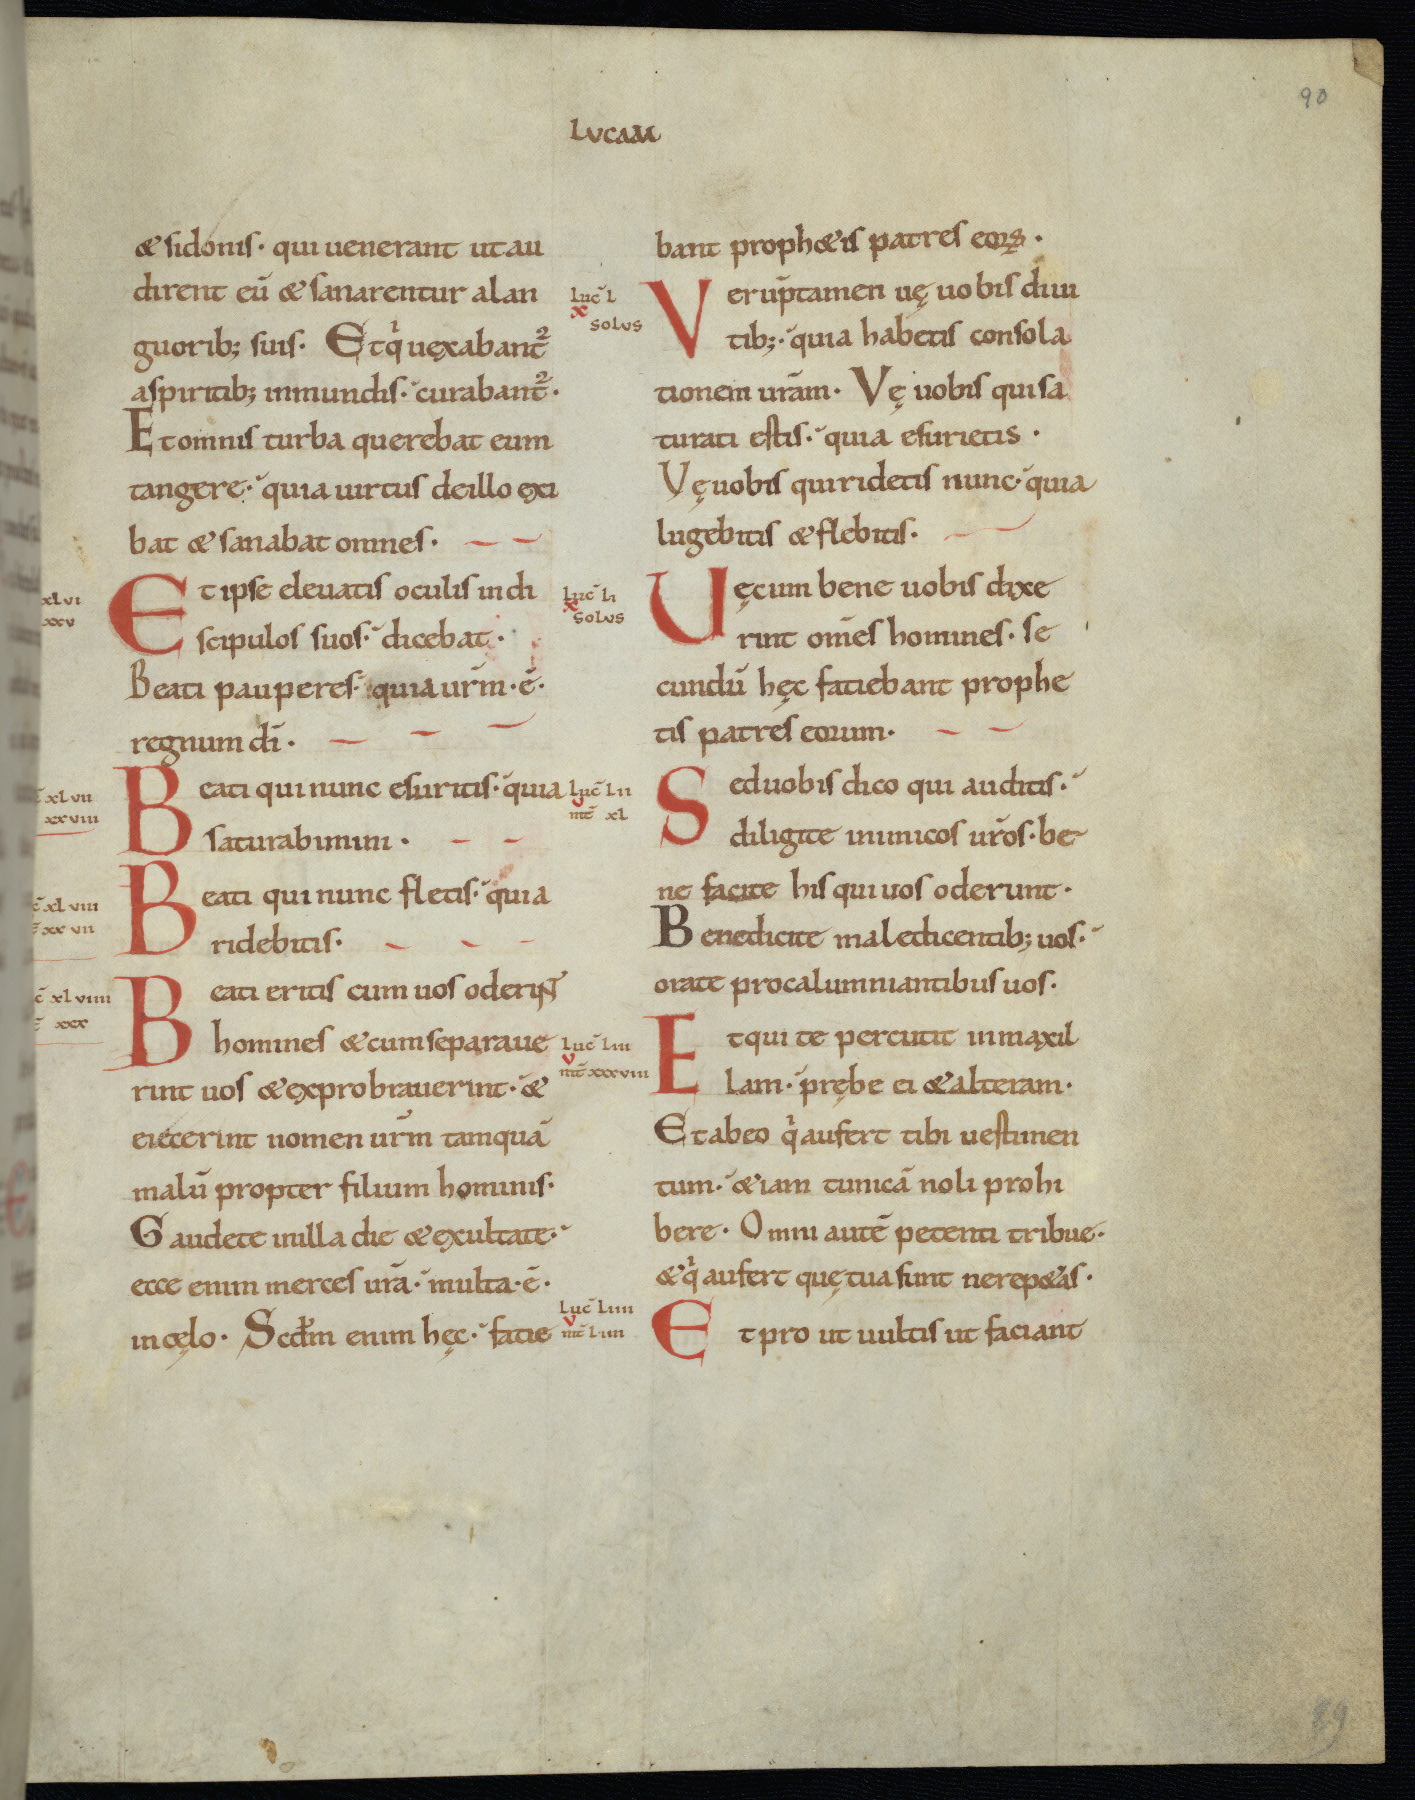 90
LUCAM
& sidonis· qui uenerant ut au
dirent eū & sanarentur a lan
guorib; suis· Et qͥ uexabant᷑
a spiritib; inmundis· curabant᷑·
Et omnis turba querebat eum
tangere· quia uirtus de illo exi
bat & sanabat omnes·
xl vi
xxv
Et ipse eleuatis oculis in di
scipulos suos· dicebat·
Beati pauperes· quia urm̄·ē·
regnum dī·
c̄ xl vii
xxviii
Beati qui nunc esuritis· quia
saturabimini·
c̄ xl viii
xx vii
Beati qui nunc fletis· quia
ridebitis·
c̄ xl viiii
xxx
Beati eritis cum uos oderint
homines & cum separaue
rint uos & exprobrauerint· &
eiecerint nomen urm̄ tamquā
malū propter filium hominis·
Gaudete in illa die & exultate·
ecce enim merces urā· multa·ē·
in cęlo· Scdm̄ enim hęc· fatie
bant proph&is patres eoꝝ·
Luc̄ L
x
SOLUS
Verūptamen uę uobis diui
tib;· quia habetis consola
tionem urām· Vę uobis qui sa
turati estis· quia esurietis·
Vę uobis qui ridetis nunc· quia
lugebitis & flebitis·
Luc̄ Li
x
SOLUS
Uę cum bene uobis dixe
rint om̄es homines· se
cundū hęc fatiebant prophe
tis patres eorum·
Luc̄ Lii
v
mt̄ xl
Sed uobis dico qui auditis·
diligite inimicos ur̄os· be
ne facite his qui uos oderunt·
Benedicite maledicentib; uos·
orate pro calumniantibus uos·
Luc̄ Liii
v
mt̄ xxxviii
Et qui te percutit in maxil
lam· prębe ei & alteram·
Et ab eo qͥ aufert tibi uestimen
tum· & iam tunicā noli prohi
bere· Omni autē petenti tribue·
& qͥ aufert quę tua sunt ne rep&as·
Luc̄ Liiii
v
mt̄ Liiii
Et pro ut uultis ut faciant
89